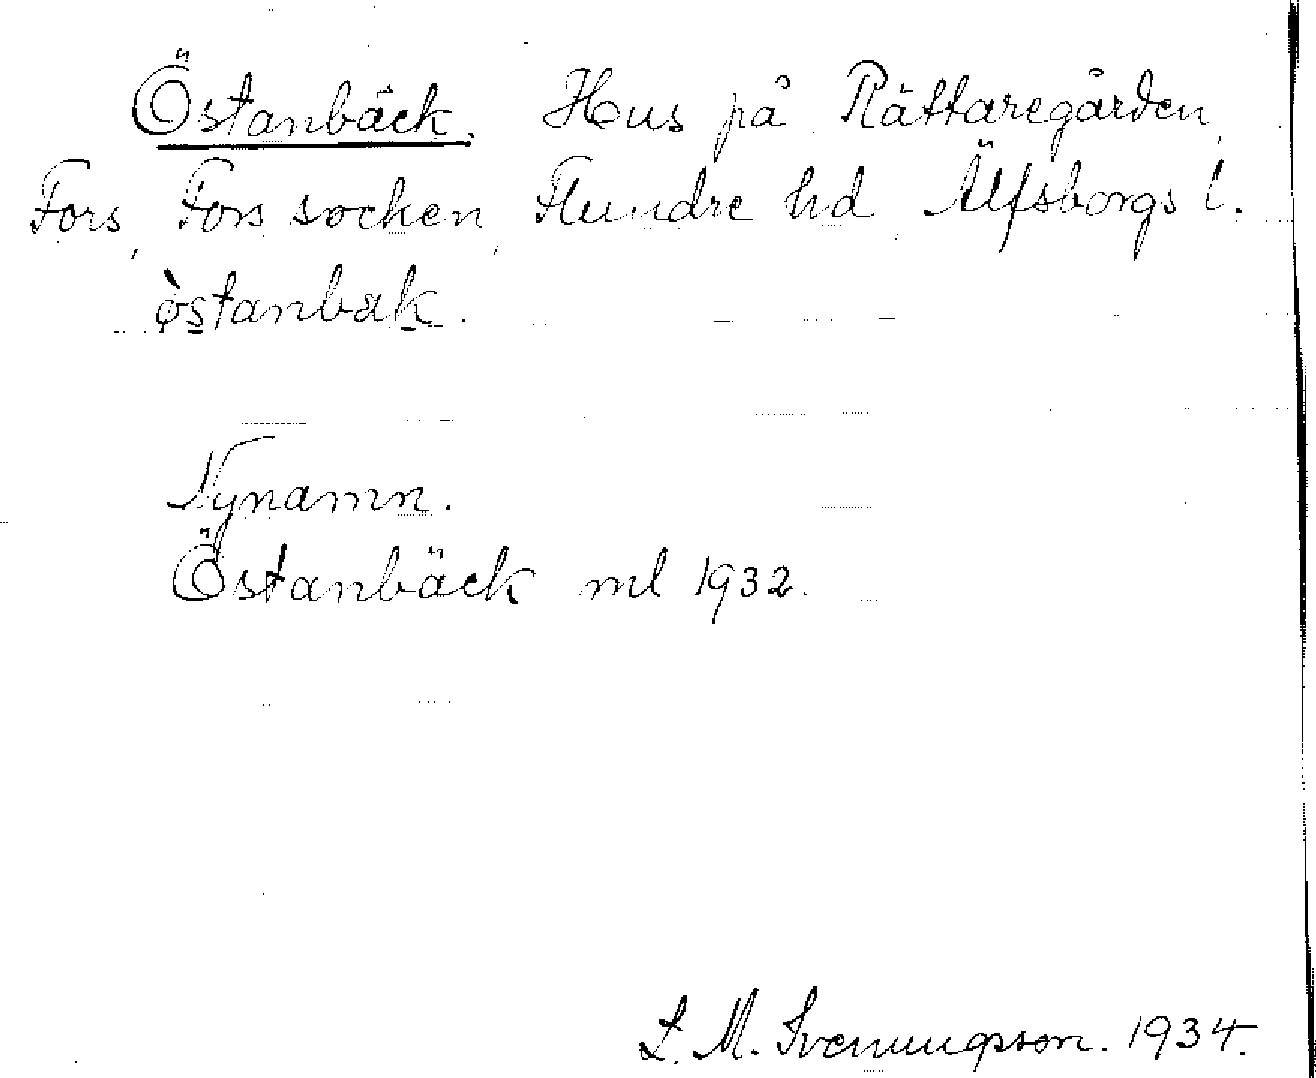 Östanbäck. Hus på Rättaregården,
Fors, Fors socken, Flundre hd, Älfsborgs l.
östanbäk.
Nynamn.
Östanbäck ml 1932.
L. M. Svenungsson. 1934.